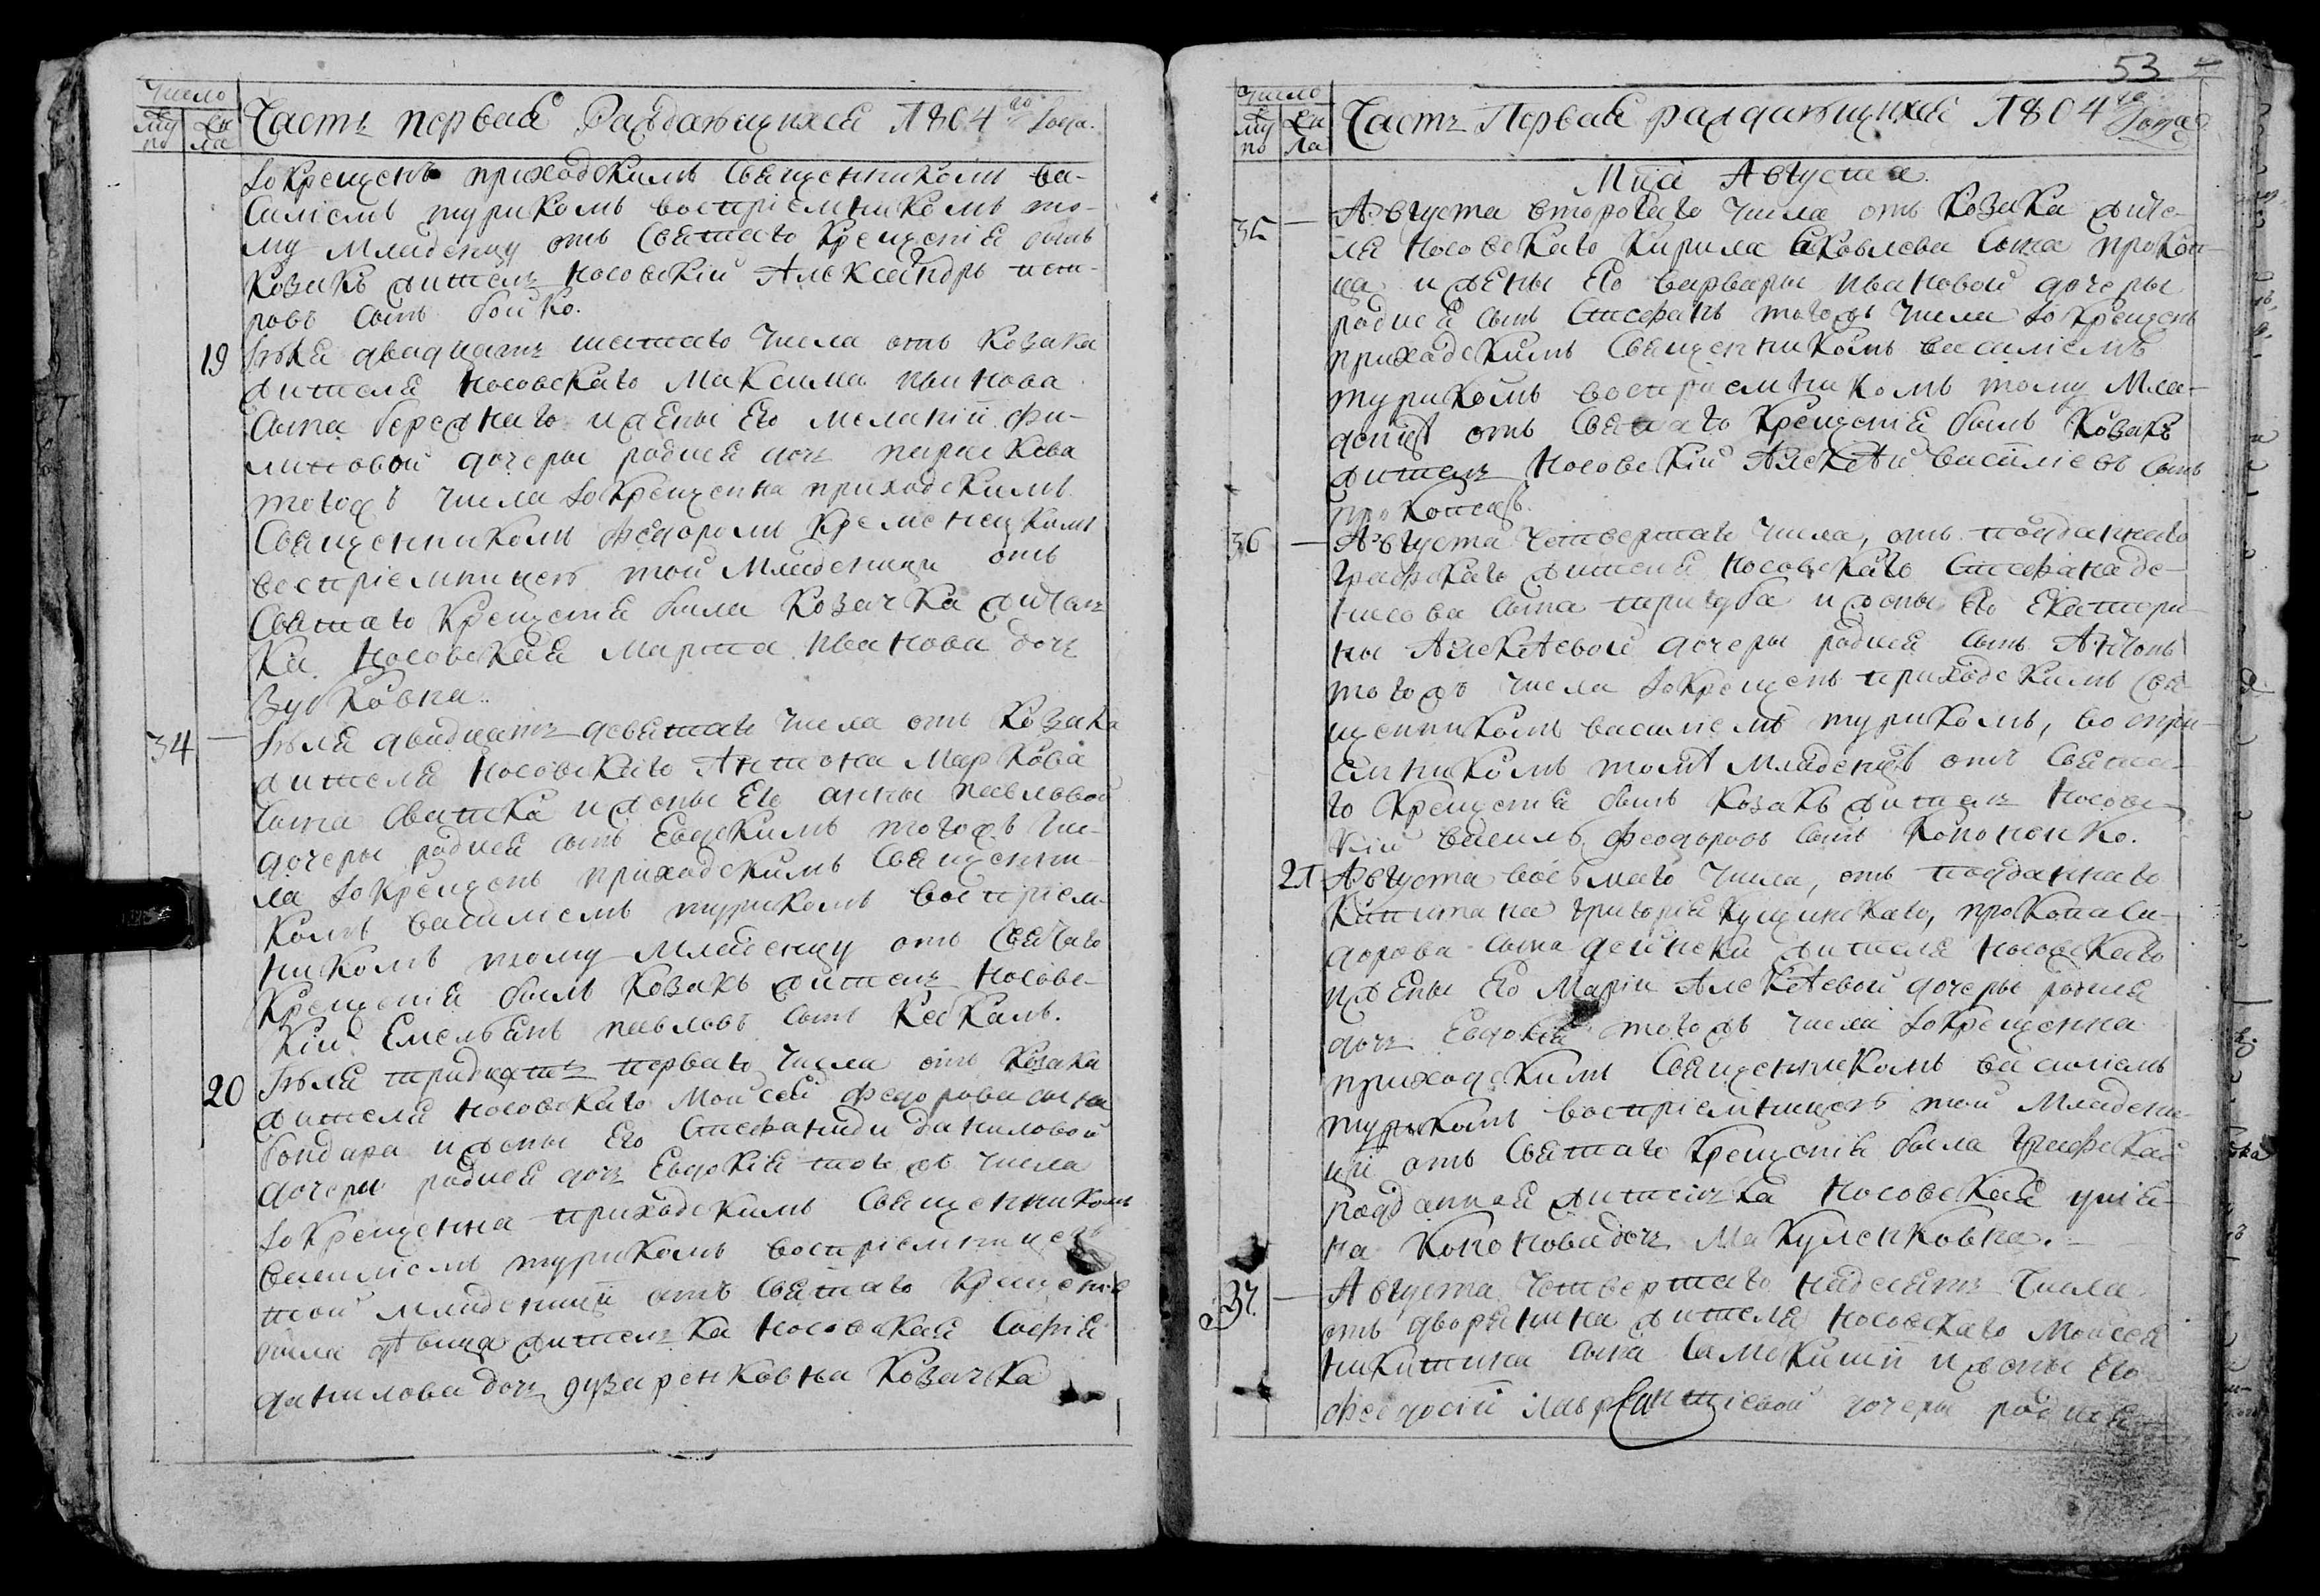 Число
му по
же ла
Часть первая Раждающихся 1804го Года.
окрещенъ приходскимъ Священникомъ Ва-
силіемъ турикомъ воспріемникомъ то-
му Младенцу отъ Святаго Крещенія былъ
Козакъ житель Носовскій Александръ
ровъ сынъ бойко.
19 Іюля двадцать шестаго числа отъ Козака
жителя Носовскаго Максима Иванова
сына бережнаго и жены Его Меланіи Фи-
липовой дочеры родися дочь параскева
тогожъ числа окрещенна приходскимъ
Священникомъ Феодоромъ Кременецкимъ
воспріемницею той Младеницы отъ
Святаго Крещенія была Козачка житель
ка Носовская Марта Иванова дочь
Зубковна.
34 — Іюля двадцать девятаго числа отъ Козака
жителя Носовскаго Антона Маркова
сына и жены Его анны павловой
дочеры родися сынъ Евдокимъ тогожъ чи-
ла окрещенъ приходскимъ Священни-
комъ василіемъ турикомъ воспріем-
никомъ тому Младенцу отъ Святаго
Крещенія былъ Козакъ житель Носовс-
кій Емельянъ павловъ сынъ Кебкалъ.
20 Іюля тридцать перваго числа отъ Козака
жителя Носовскаго Моисея Федорова сына
бондара и жены Его Стефаниди даниловой
дочеры родися дочь Евдокія тогожъ числа
окрещенна приходскимъ Священникомъ
василіемъ турикомъ воспріемницею
той младеници отъ Святаго Крещенія
была дѣвица жителька Носовская Софія
данилова дочь дузаренковна Козачка
53
Число
му по
же ла
Часть Первая раждающихся 1804го Года
Мца Августа
35 — Августа второгаго числа отъ Козака жите-
ля Носовскаго Кирила Яковлева сына прокоп-
ца и жены Его варвары Ивановой дочеры
родися сынъ Стефанъ тогожъ числа окрещенъ
приходскимъ Священникомъ василіемъ
турикомъ воспріемникомъ тому Мла-
денцу отъ Святаго Крещенія былъ Козакъ
житель Носовскій Алексѣй василіевъ сынъ
прокопецъ.
36 — Августа четвертаго числа, отъ подданнаго
графскаго жителя Носовскаго Стефана де-
нисова сына тригуба и жены Его Екатери-
ны Алексѣевой дочеры родися сынъ Антонъ
тогожъ числа окрещенъ приходскимъ Свя-
щенникомъ василіемъ турикомъ, воспри-
емникомъ томѣ младенцѣ отъ Свята-
го Крещенія былъ Козакъ житель Носовс-
кій василь Феодоровъ сынъ Кононенко.
21 Августа восьмаго числа, отъ подданнаго
Капитана григорія Кущинскаго, прокопа си-
дорова сына дейнеки жителя Носовскаго
и жены Его Маріи Алексѣевой дочеры родися
дочь Евдокія тогожъ числа окрещенна
приходскимъ Священникомъ василіемъ
турикомъ воспріемницею той Младени-
ци отъ Святаго Крещенія была графская
подданная жителька Носовская улія-
на Кононова дочь Макуленковна.
37. — Августа четвертаго надесять числа
отъ дворянина жителя Носовскаго Моисея
никитина сына Самокиши и жены Его
Феодосіи лаврентіевой дочеры родися